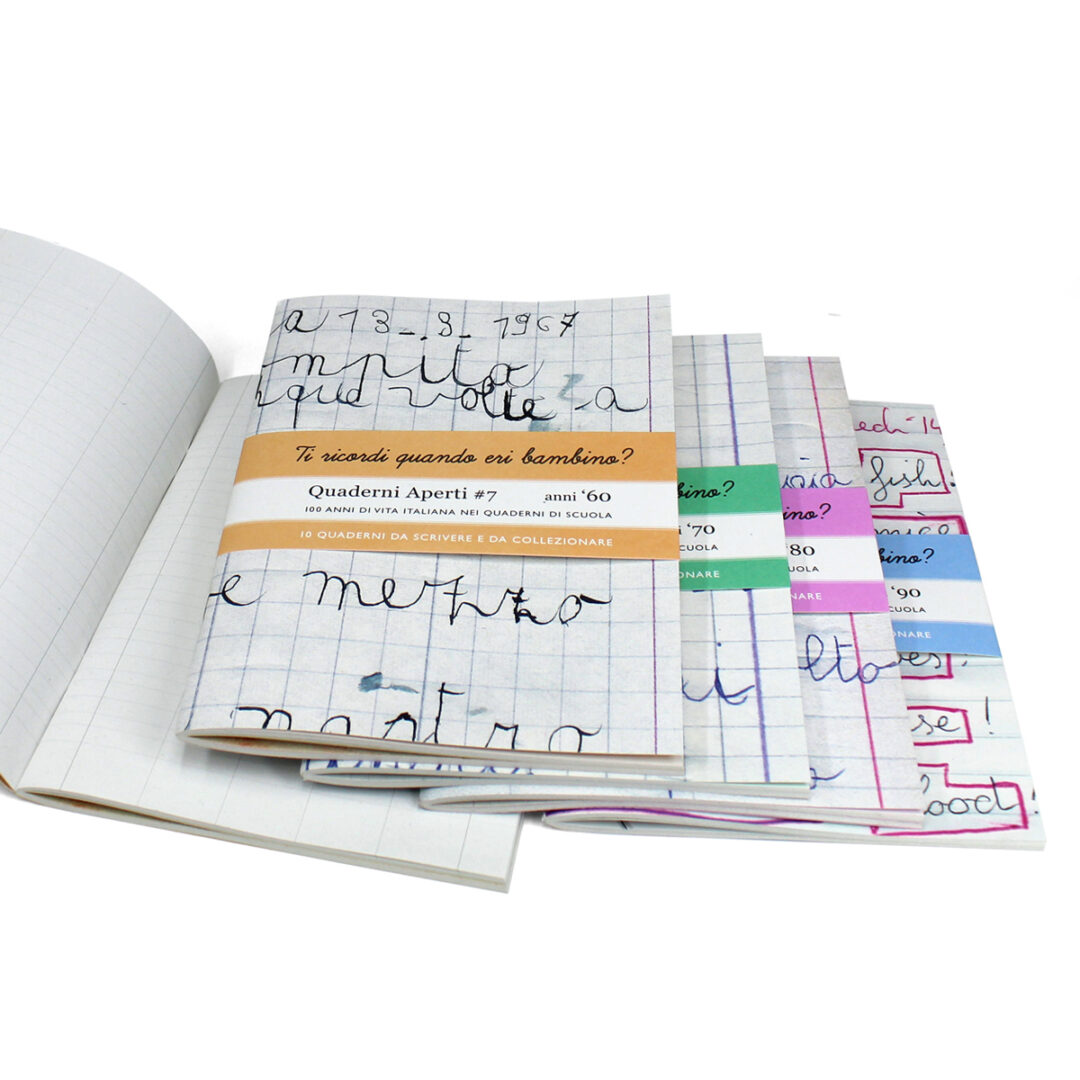 a 13_9_1967
mpita
nque volte a
Ti ricordi quando eri bambino?
Quaderni Aperti #7 anni ‘60
100 ANNI DI VITA ITALIANA NEI QUADERNI DI SCUOLA
10 QUADERNI DA SCRIVERE E DA COLLEZIONARE
e mezzo
nastro
bino?
i ‘70
SCUOLA
ONARE
i
ino?
‘80
UOLA
NARE
lto
edì 14
fish!
mice
bino?
‘90
SCUOLA
ONARE
ves!
se!
lood!